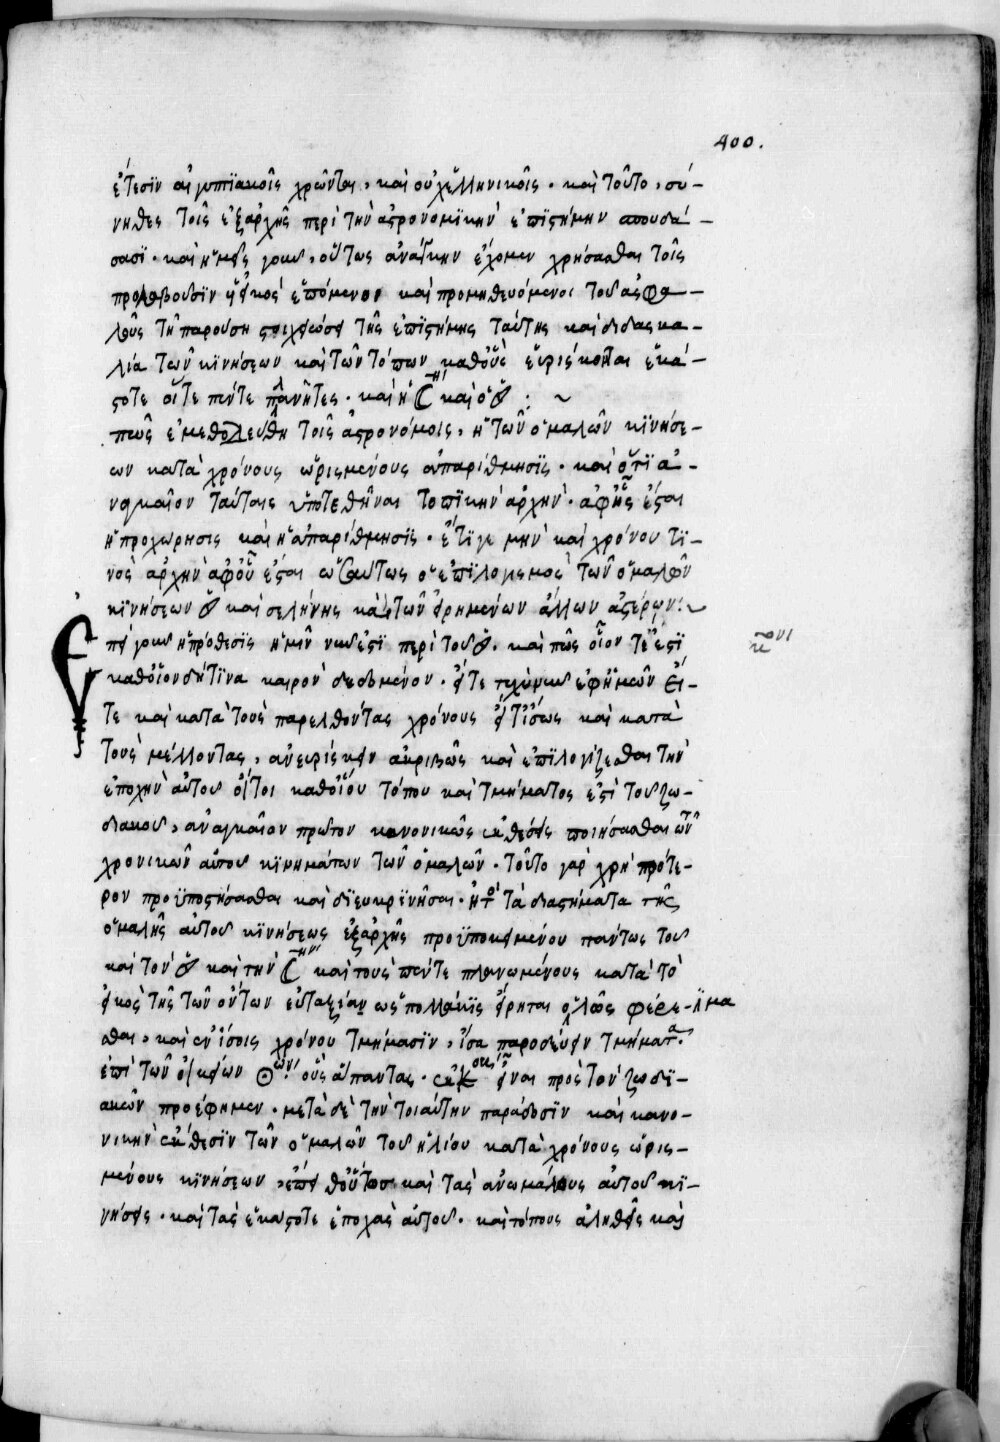 400.
ἔτεσϊν αἰγυπτϊακοῖς χρῶνται, καὶ οὐχ ἑλληνικοῖς. καὶ τοῦτο, σύ-
νηθες τοῖς ἐξαρχῆς περὶ τὴν ἀστρονομϊκὴν ἐπϊστήμην σπουδά-
σασϊ. καὶ ἡμεῖς γοῦν, οὕτως ἀνάγκην ἔχομεν χρήσασθαι τοῖς
προλαβοῦσϊν ᾗ εἰκὸς ἑπόμενοι καὶ προμηθευόμενοι τοῦ ἀσφα-
λοῦς τῇ παρούσῃ στοιχειώσει τῆς ἐπϊστήμης ταύτης καὶ διδασκα-
λία τῶν κϊνήσεων καὶ τῶν τόπων καθοὓς εὑρίσκονται ἑκά-
στοτε οἵ τε πέντε πλάνητες. καὶ ἡ ☾ καὶ ὁ : ~
πῶς ἐμεθοδεύθη τοῖς ἀστρονόμοις, ἡ τῶν ὁμαλῶν κϊνήσε-
ων κατὰ χρόνους ὡρισμένους ἀπαρίθμησϊς. καὶ ὅτϊ ἀ-
ναγκαῖον ταύταις ὑποτεθῆναι τοπϊκὴν ἀρχὴν. ἀφῆς ἔσται
ἡ προχώρησις καὶ ἡ ἀπαρίθμησϊς. ἔτϊ γε μὴν καὶ χρόνου τϊ-
νὸς ἀρχὴν ἀφοῦ ἔσται ὡσαύτως ὁ ἐπϊλογισμὸς τῶν ὁμαλῶν
κϊνήσεων καὶ σελήνης καὶ τῶν εἰρημένων ἄλλων ἀστέρων: ~
Ἐπεὶ γοῦν ἡ πρόθεσϊς ἡμῖν νῦν ἐστϊ περὶ τοῦ . καὶ πῶς οἷον τέ ἐστϊ
καθοϊονδήτϊνα καιρὸν δεδομένον. εἴτε τυχὸν ἐφημῶν εἴ-
τε καὶ κατὰ τοὺς παρελθόντας χρόνους εἴτ ἴσως καὶ κατὰ
τοὺς μέλλοντας, ἀνευρίσκειν ἀκριβῶς καὶ ἐπϊλογίζεσθαι τὴν
ἐποχὴν αὐτοῦ ἤτοι καθοἵου τόπου καὶ τμήματος ἐστὶ τοῦ ζω-
διακοῦ, ἀναγκαῖον πρῶτον κανονικῶς ἐκθέσεις ποιήσασθαι τῶν
χρονικῶν αὐτοῦ κϊνημάτων τῶν ὁμαλῶν. τοῦτο γὰρ χρὴ πρότε-
ρον προϋποστήσασθαι καὶ δϊευκρϊνῆσαι. τὰ διαστήματα τῆς
ὁμαλῆς αὐτοῦ κϊνήσεως ἐξαρχῆς προϋποκειμένου πάντως τοῦ
καὶ τὸν καὶ τὴν ☾ καὶ τοὺς πέντε πλανωμένους κατὰ τὸ
εἰκὸς τῆς τῶν ὄντων εὐταξίας ὡς πολλάκϊς εἴρηται ὁμαλῶς φέρε-
σθαι, καὶ ἐν ἴσοις χρόνου τμήμασϊν, ἴσα παροδεύειν τμήματα.
ἐπὶ τῶν οἰκείων οὓς ἅπαντας. εἶναι πρὸς τὸν ζωδϊ-
ακὸν προέφημεν. μετὰ δὲ τὴν τοιαύτην παράδοσϊν καὶ κανο-
νικὴν ἔκθεσϊν τῶν ὁμαλῶν τοῦ ἡλίου κατὰ χρόνους ὡρισ-
μένους κϊνήσεων, ἐπειθοῦτοσ καὶ τὰς ἀνωμάλους αὐτοῦ κϊ-
νήσεις. καὶ τὰς ἑκάστοτε ἐποχὰς αὐτοῦ. καὶ τόπους ἀληθεῖς καὶ